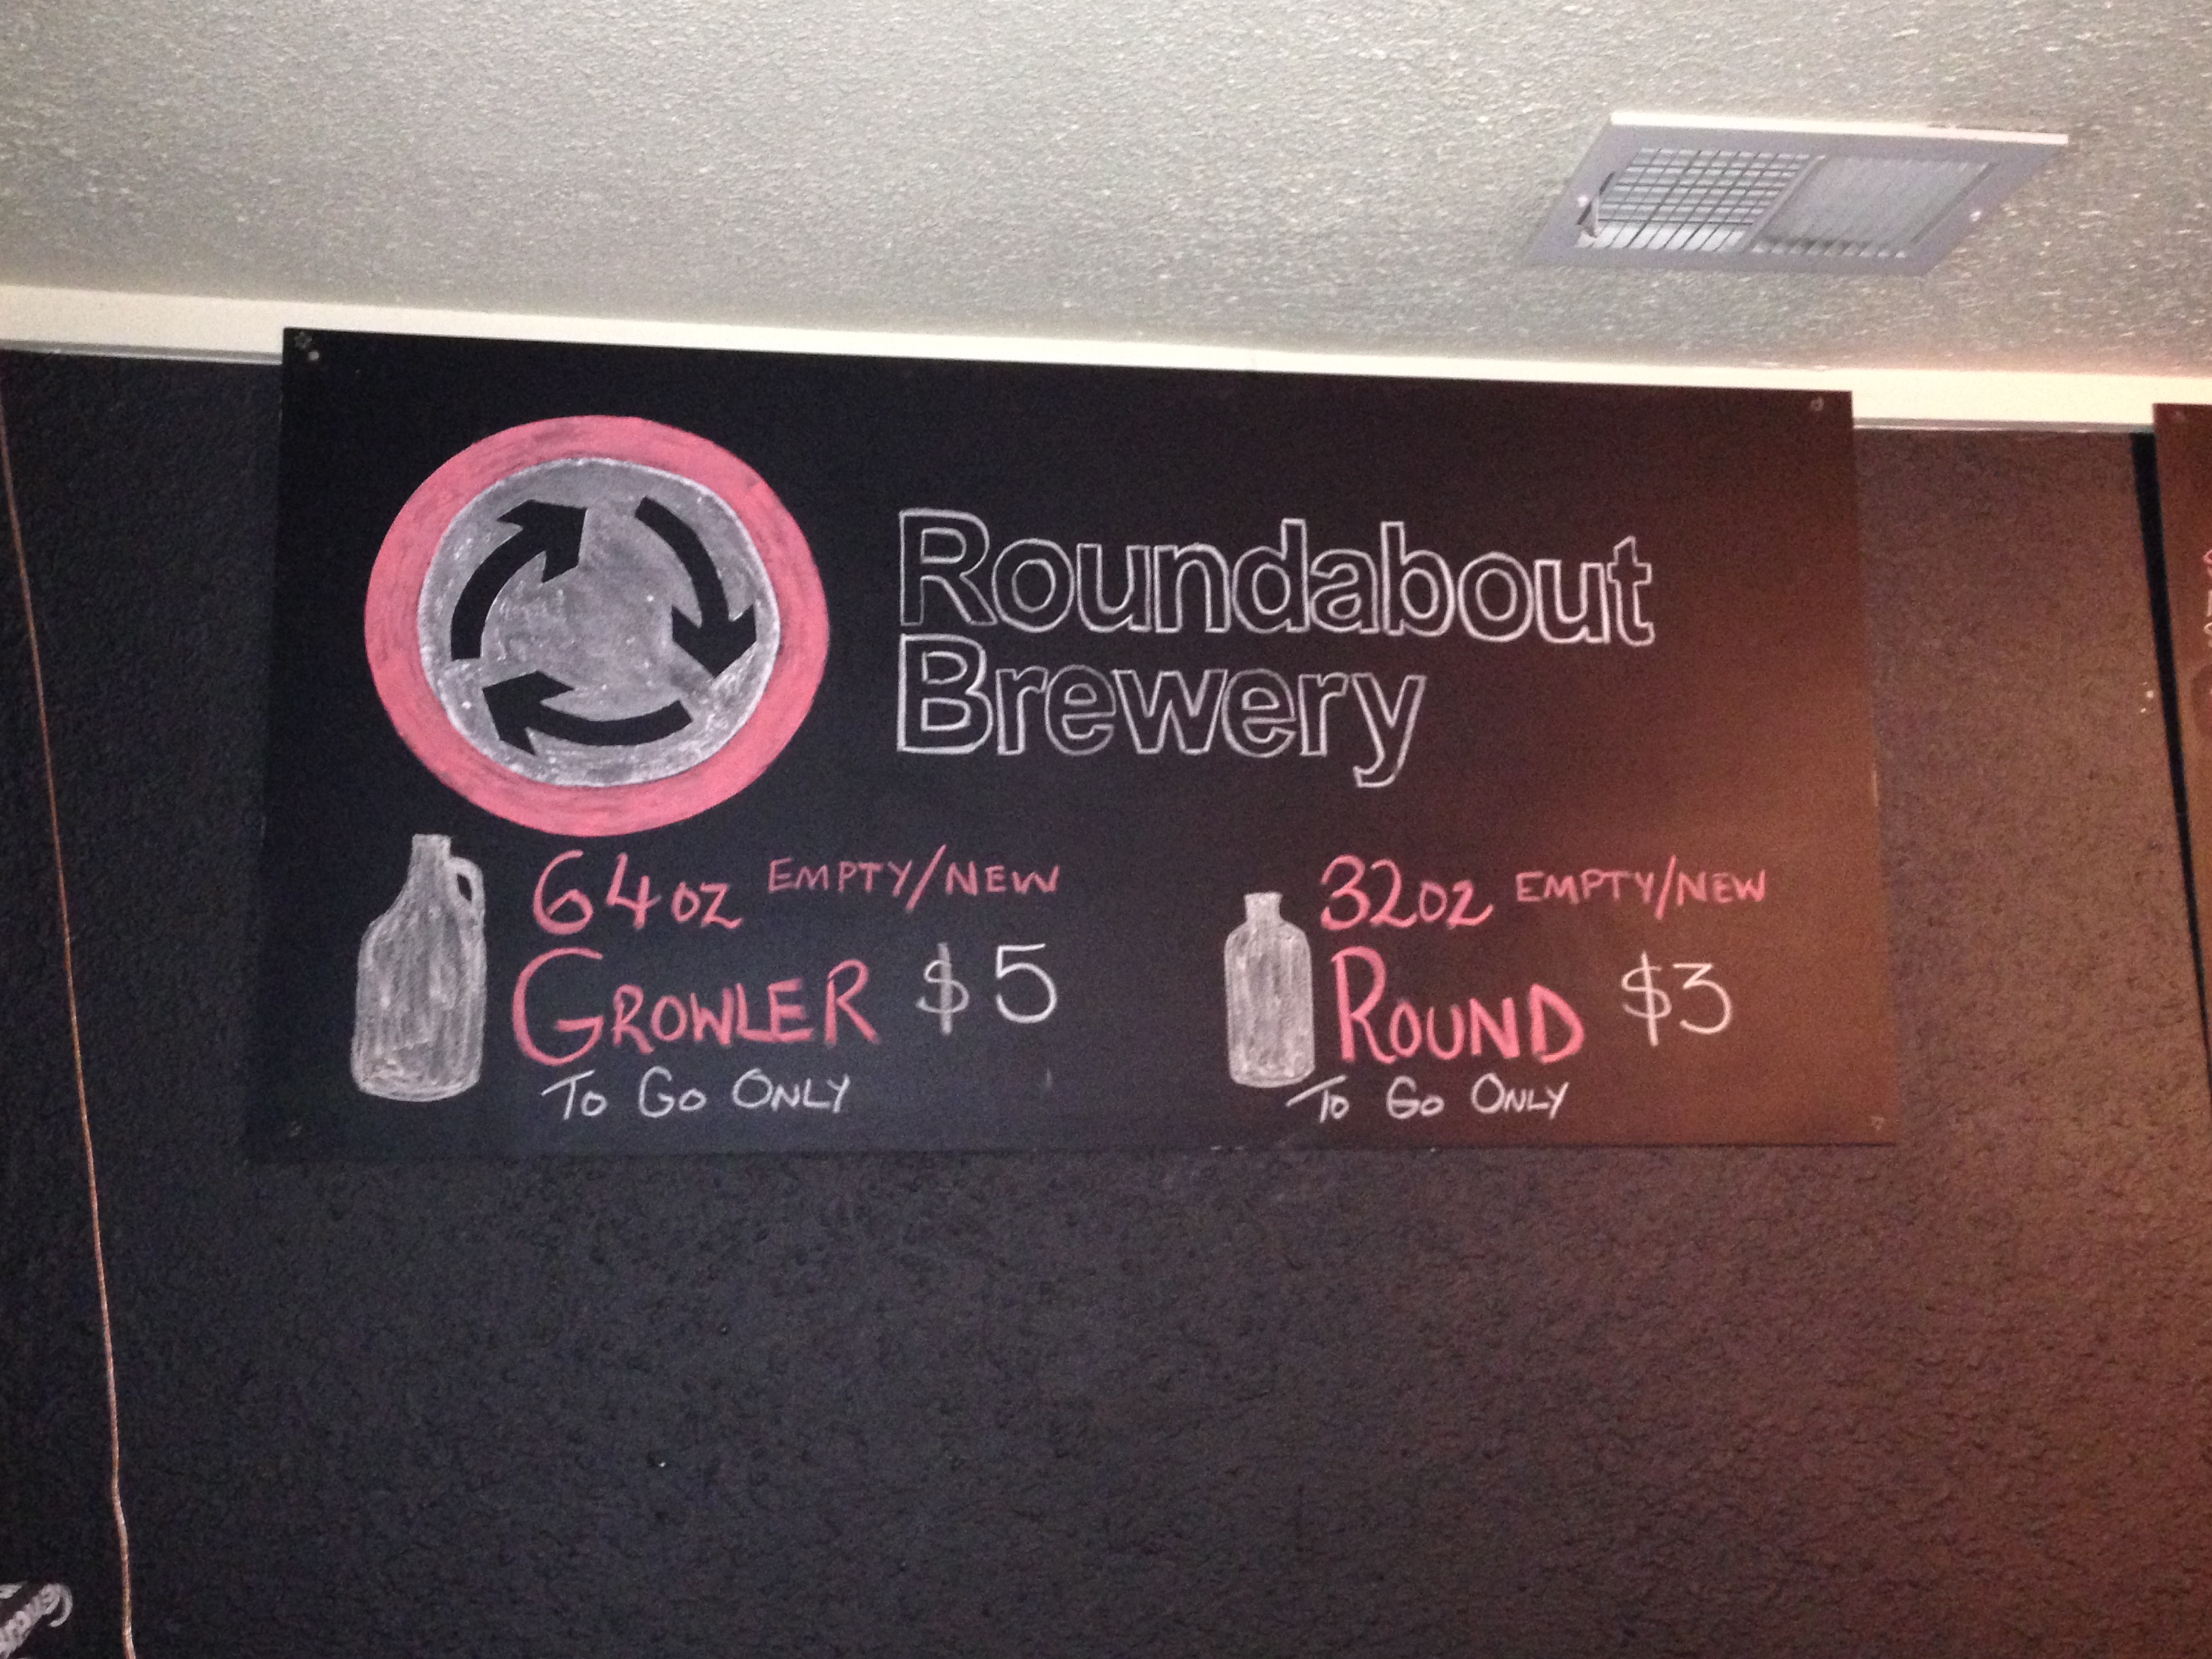 Roundabout
Brewery
64oz EMPTY/NEW
GROWLER $5
To Go ONLY
32oz EMPTY/NEW
ROUND $3
To Go ONLY